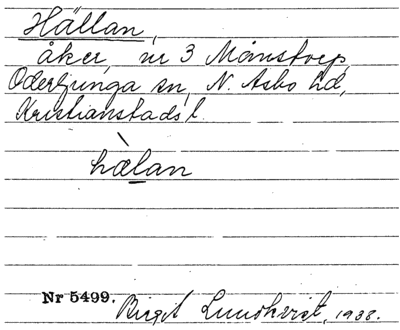 Hällan,
åker, nr 3 Månstorp,
Oderljunga sn, N. Asbo hd,
Kristianstads l.
hæ̀lan
Nr 5499. Birgit Lundkvist, 1938.